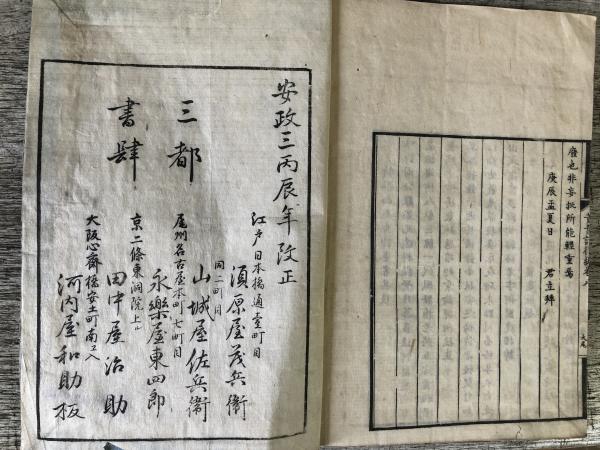 廢也非妄挺所能輕重焉
庚辰孟夏日
君立辤
大尾
安政三丙辰年改正
三都
書肆
江戸日本橋通壹町目
須原屋茂兵衞
同二町目
山城屋佐兵衞
尾州名古屋本町七町目
永樂屋東四郎
京二條東洞院上ル
田中屋治助
大阪心齋橋安土町南エ入
河内屋和助板